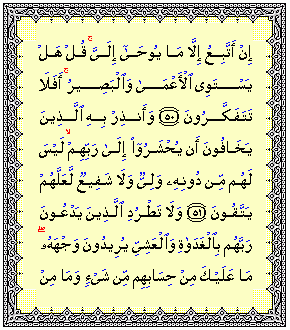 إِنْ أَتَّبِعُ إِلَّا مَا يُوحَىٰٓ إِلَىَّ ۚ قُلْ هَلْ
يَسْتَوِى ٱلْأَعْمَىٰ وَٱلْبَصِيرُ ۚ أَفَلَا
تَتَفَكَّرُونَ ٥٠ وَأَنذِرْ بِهِ ٱلَّذِينَ
يَخَافُونَ أَن يُحْشَرُوٓا۟ إِلَىٰ رَبِّهِمْ ۙ لَيْسَ
لَهُم مِّن دُونِهِۦ وَلِىٌّ وَلَا شَفِيعٌ لَّعَلَّهُمْ
يَتَّقُونَ ٥١ وَلَا تَطْرُدِ ٱلَّذِينَ يَدْعُونَ
رَبَّهُم بِٱلْغَدَوٰةِ وَٱلْعَشِىِّ يُرِيدُونَ وَجْهَهُۥ ۖ
مَا عَلَيْكَ مِنْ حِسَابِهِم مِّن شَىْءٍ وَمَا مِنْ